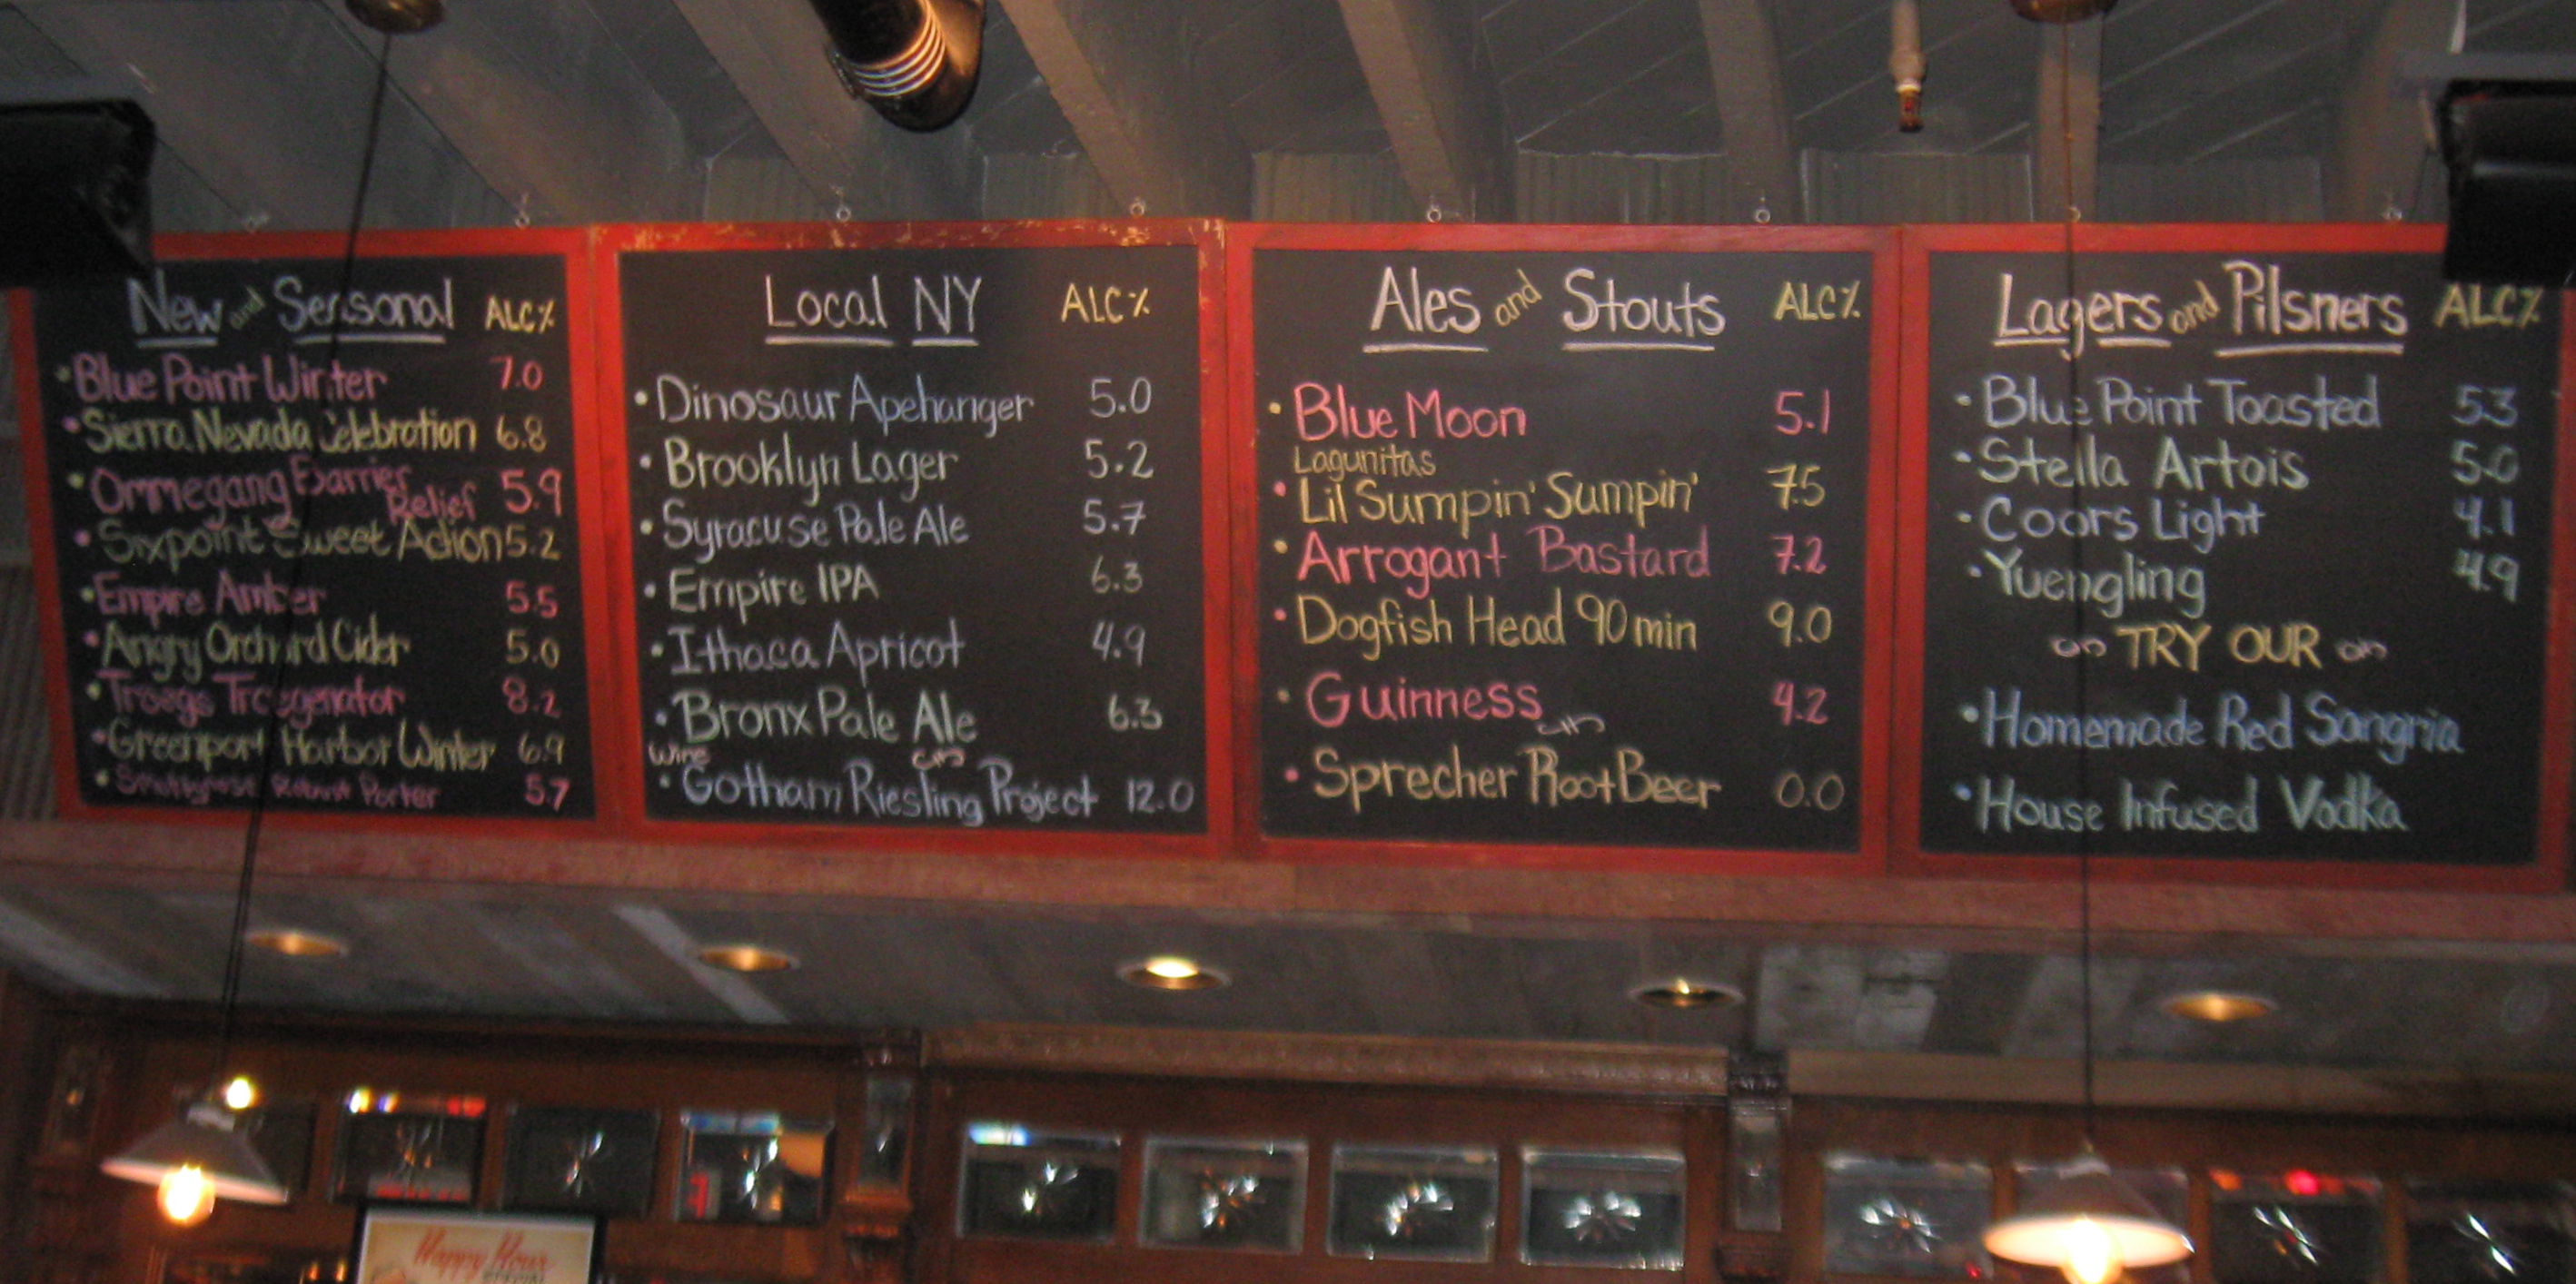 New and Seasonal ALC%
• Blue Point Winter 7.0
• Sierra Nevada Celebration 6.8
• Ommegang Barrier Relief 5.9
• Sixpoint Sweet Action 5.2
• Empire Amber 5.5
• Angry Orchard Cider 5.0
• Troegs Troegenator 8.2
• Greenport Harbor Winter 6.9
• Robust Porter 5.7
Local NY ALC%
• Dinosaur Apehanger 5.0
• Brooklyn Lager 5.2
• Syracuse Pale Ale 5.7
• Empire IPA 6.3
• Ithaca Apricot 4.9
• Bronx Pale Ale 6.3
Wine
• Gotham Riesling Project 12.0
Ales and Stouts ALC%
• Blue Moon 5.1
Lagunitas
• Lil Sumpin' Sumpin' 7.5
• Arrogant Bastard 7.2
• Dogfish Head 90 min 9.0
• Guinness 4.2
• Sprecher Root Beer 0.0
Lagers and Pilsners ALC%
• Blue Point Toasted 5.3
• Stella Artois 5.0
• Coors Light 4.1
• Yuengling 4.9
TRY OUR
• Homemade Red Sangria
• House Infused Vodka
Happy Hour
SPECIAL